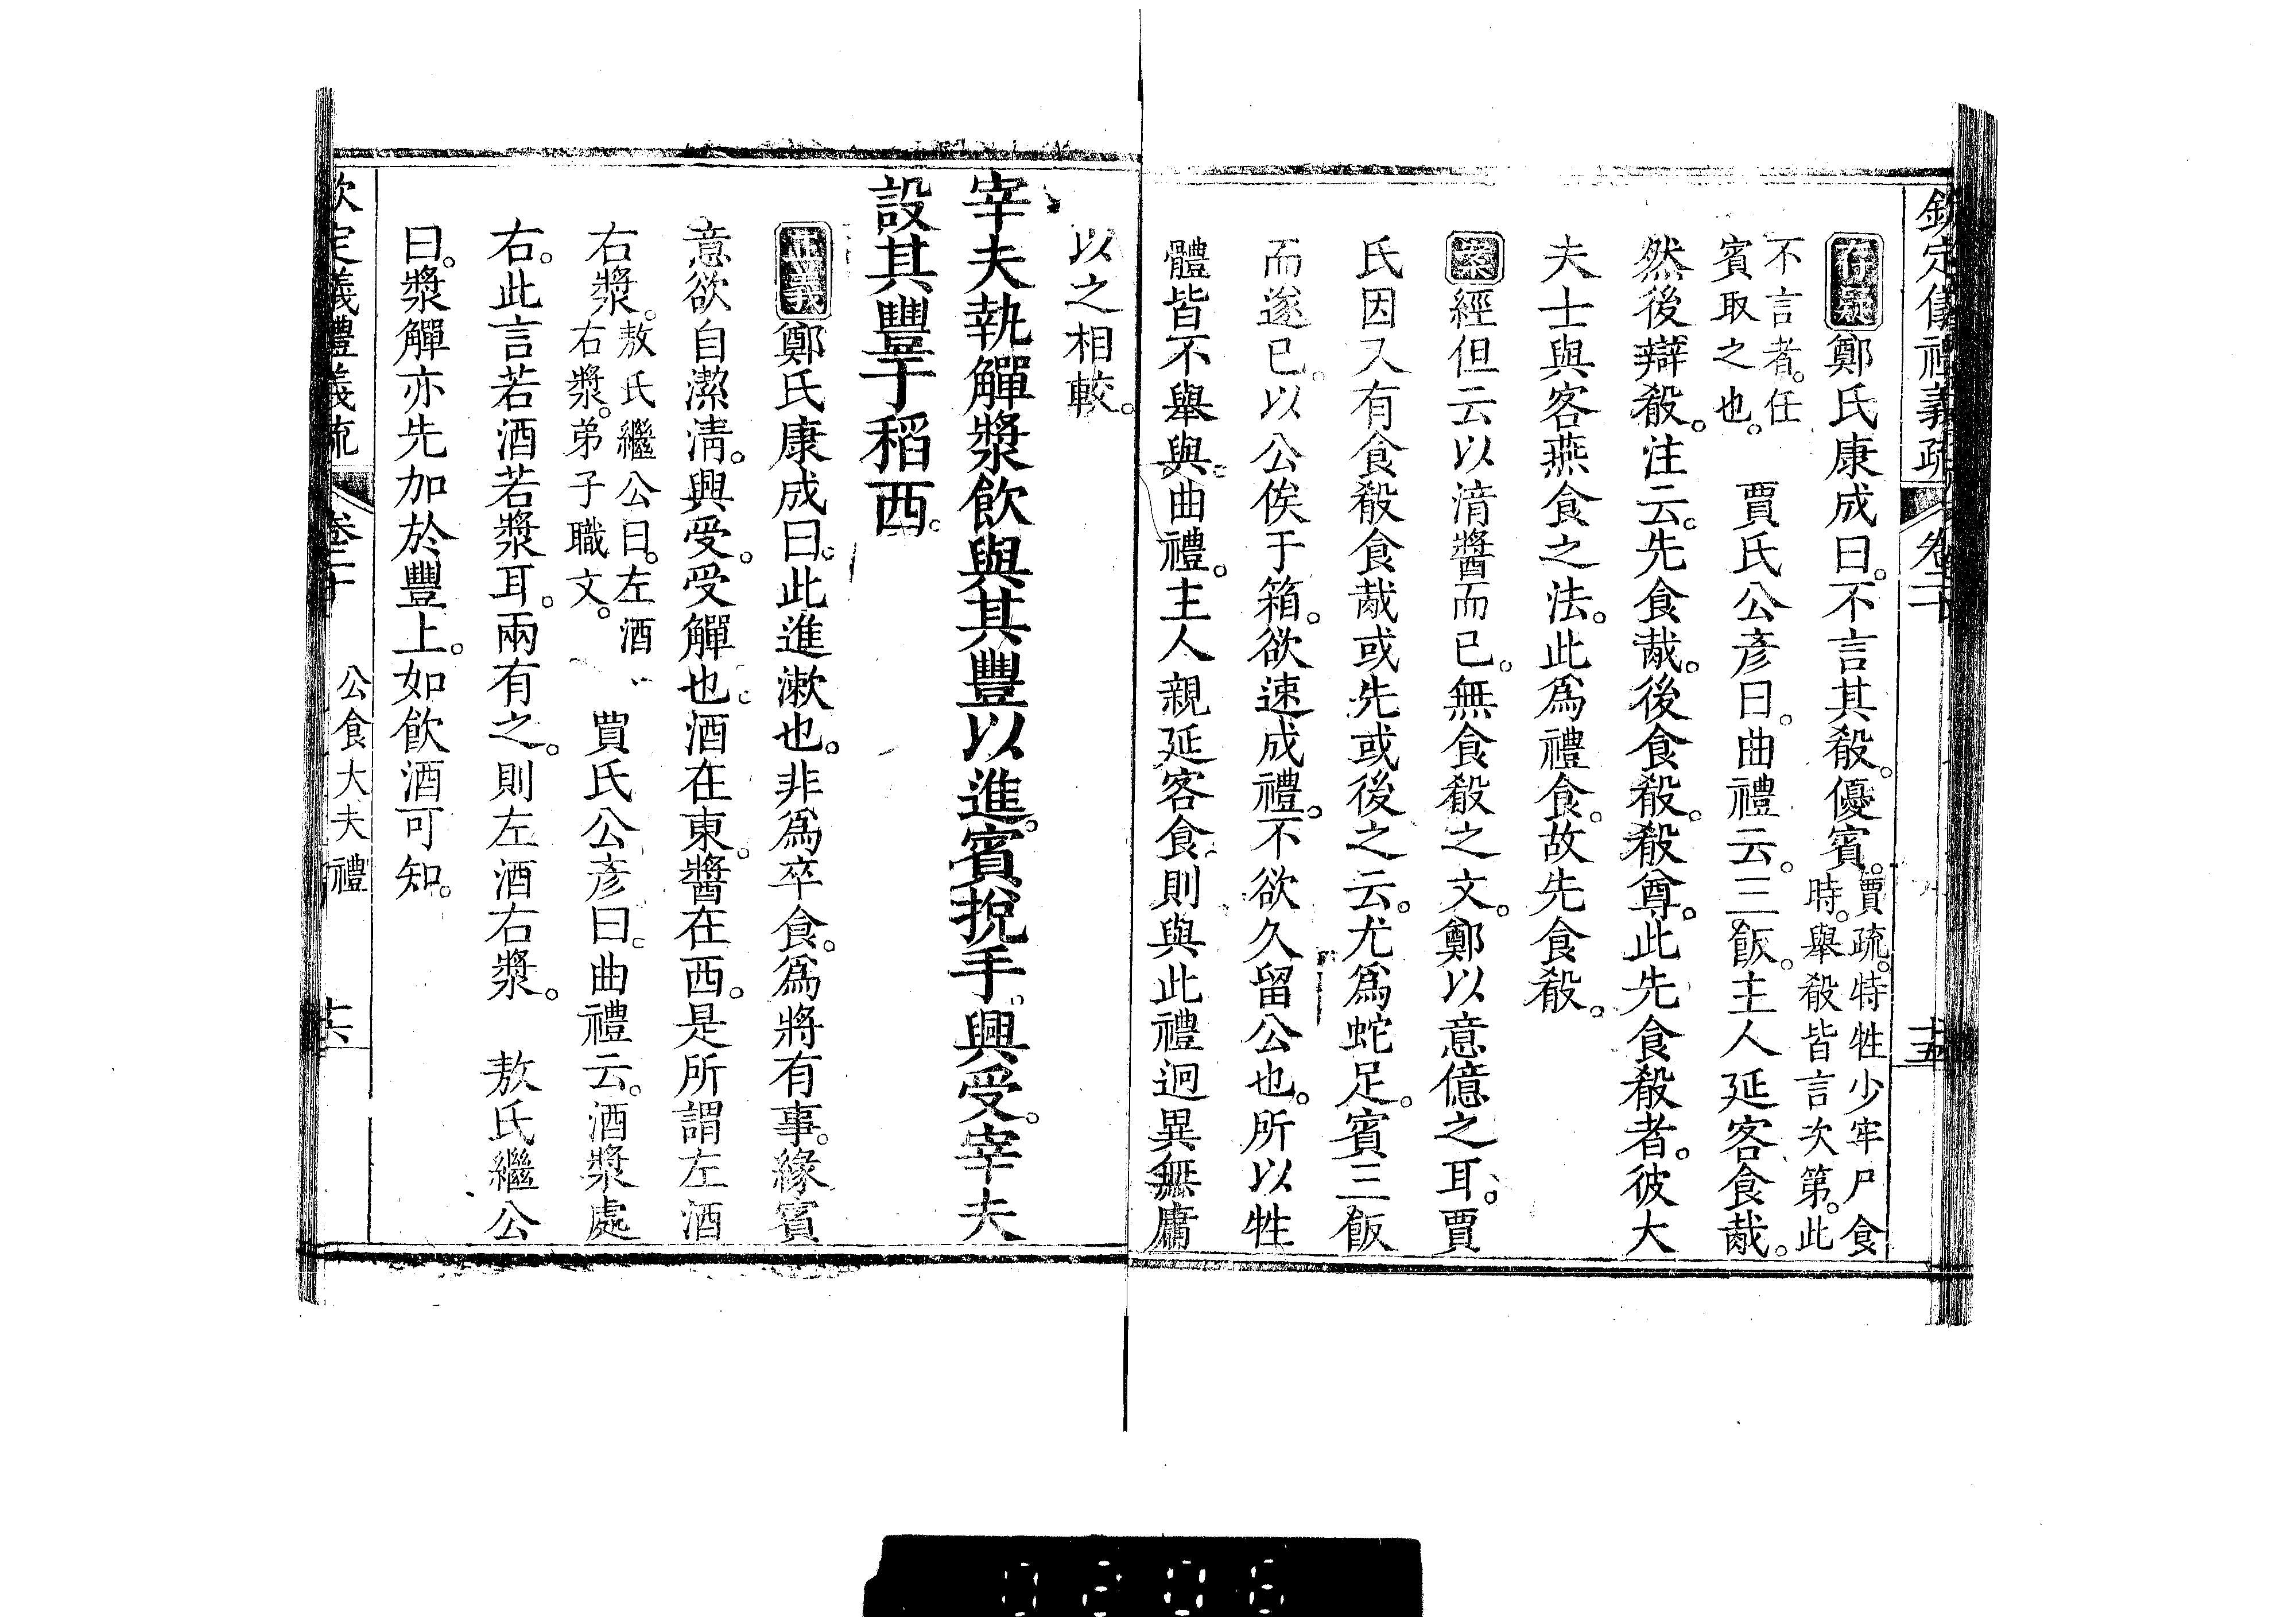 欽定儀禮義疏 卷二十 十五
存疑鄭氏康成曰。不言其殽。優賓。賈疏。特牲少牢尸食時。舉殽皆言次第。此
不言者。任賓取之也。 賈氏公彥曰。曲禮云。三飯。主人延客食胾。
然後辯殽。注云。先食胾。後食殽。殽尊。此先食殽者。彼大
夫士與客燕食之法。此為禮食。故先食殽。
案經但云以湆醬而已。無食殽之文。鄭以意億之耳。賈
氏因又有食殽食胾或先或後之云。尤為蛇足。賓三飯
而遂已。以公俟于箱。欲速成禮。不欲久留公也。所以牲
體皆不舉與。曲禮。主人親延客食。則與此禮迥異。無庸
以之相較。
宰夫執觶漿飲與其豐以進。賓挩手。興受。宰夫
設其豐于稻西。
正義鄭氏康成曰。此進漱也。非為卒食。為將有事。緣賓
意欲自潔淸。興受。受觶也。酒在東。醬在西。是所謂左酒
右漿。敖氏繼公曰。左酒右漿。弟子職文。 賈氏公彥曰。曲禮云。酒漿處
右。此言若酒若漿耳。兩有之。則左酒右漿。 敖氏繼公
曰。漿觶亦先加於豐上。如飮酒可知。
欽定儀禮義疏 卷二十 公食大夫禮 十六
0206